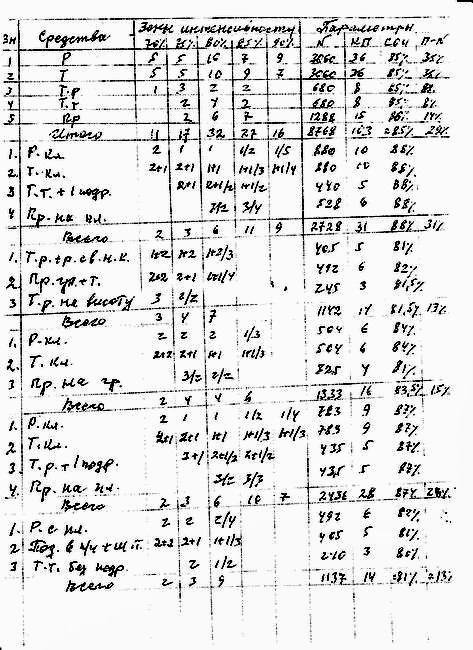 Зн Средства Зоны интенсивности Параметры
70% 75% 80% 85% 90% N КП СОИ П-N
1 Р 5 5 10 7 9 3060 36 85% 35%
2 Т 5 5 10 9 7 3060 36 85% 35%
3 Т.р 1 3 2 2 680 8 85% 8%
4 Т.т 2 4 2 680 8 85% 8%
5 Пр 2 6 7 1288 15 86% 14%
Итого 11 17 32 27 16 8768 103 85%
1. Р.кл. 2 1 1 1/2 1/5 880 10 88%
2. Т.кл. 2+1 2+1 1+1 1+1/3 1+1/4 880 10 88%
3 Т.т.+1подр. 2+1 2+1/2 1+1/2 440 5 88%
4 Пр. на кл. 3/2 3/4 528 6 88%
Всего 2 3 6 11 9 2728 31 88% 31%
1. Т.р.+р.св.н.к. 1+2 1+2 1+2/3 405 5 81%
2 Пр.гр.+т. 2+2 2+1 1+1/4 492 6 82%
3 Т.р. на высоту 3 2/2 245 3 81,5%
Всего 3 4 7 1142 14 81,5% 13%
1. Р.кл. 2 2 2 1/3 504 6 84%
2. Т.кл. 2+2 2+1 1+1 1+1/3 504 6 84%
3 Пр. на гр. 3/2 2/2 325 4 81%
Всего 2 4 4 6 1333 16 83,5% 15%
1. Р.кл. 2 1 1 1/2 1/4 783 9 87%
2 Т.кл. 2+1 2+1 1+1 1+1/3 1+1/3 783 9 87%
3. Т.р.+1подр. 3+1 2+1/2 2+1/2 435 5 87%
4. Пр. на кл. 3/2 3/3 435 5 87%
Всего 2 3 6 10 7 2436 28 87% 28%
1. Р.с кл. 2 2 2/4 492 6 82%
2 Поз. в 2+2 2+1 1+1/3 405 5 81%
3 Т.т. без подр. 2 1/2 240 3 80%
Всего 2 3 9 1137 14 81% 13%